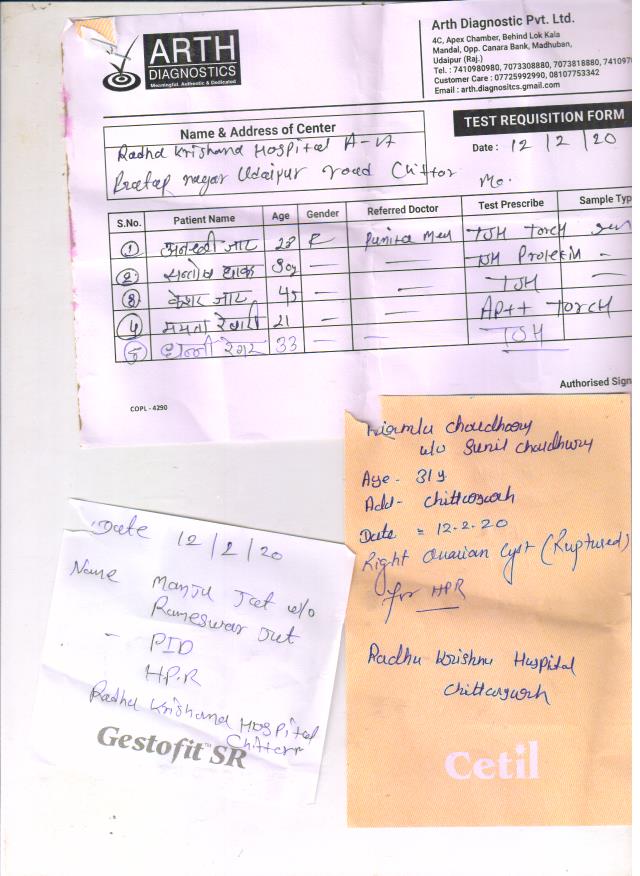 ARTH
DIAGNOSTICS
Meaningful, Authentic & Dedicated
Arth Diagnostic Pvt. Ltd.
4C, Apex Chamber, Behind Lok Kala
Mandal, Opp. Canara Bank, Madhuban,
Udaipur (Raj.)
Tel. : 7410980980, 7073308880, 7073818880, 741097
Customer Care : 07725992990, 08107753342
Email : arth.diagnositcs.gmail.com
TEST REQUISITION FORM
Date : 12 / 2 / 20
Name & Address of Center
Radha Krishana Hospital
Pratap nagar Udaipur road Chittor
Mo.
S.No. Patient Name Age Gender Referred Doctor Test Prescribe Sample Typ
1 जाट 23 F Punita TSH Torch
2 संतोष 30y — — TSH Prolectin —
3 केशर जाट 45 — — TSH
4 ममता रेबारी 21 — — AP++ TORCH
5 रेगर 33 — — TSH
Authorised Sign
COPL - 4290
Nirmla choudhary
w/o Sunil chaudhury
Age - 31y
Add - Chittorgarh
Date = 12-2-20
Right Ovarian Cyst (Ruptured)
for HPR
Radhu Krishnu Huspital
Chittorguorh
Cetil
Date 12/2/20
Name Manju Jat w/o
Rameswar Jat
- PID
H.P.R
Radhu Krishana Hospital
Chittorr
Gestofit™ SR